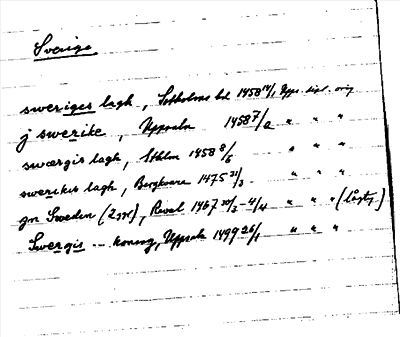 Sverige
sweriges lagh, Stkholms bd 1458 14/1 Upps. dipl. orig
j swerike, Uppsala 1458 7/2 " " "
swærgis lagh, Sthlm 1458 8/5 " " "
swerikis lagh, Borgkvara 1475 31/3. " " "
gn Sweden (2 ggr), Reval 1467 30/3 - 4/4 " " " (lågty.)
Swergis --- konung, Uppsala 1499 26/1 " " "